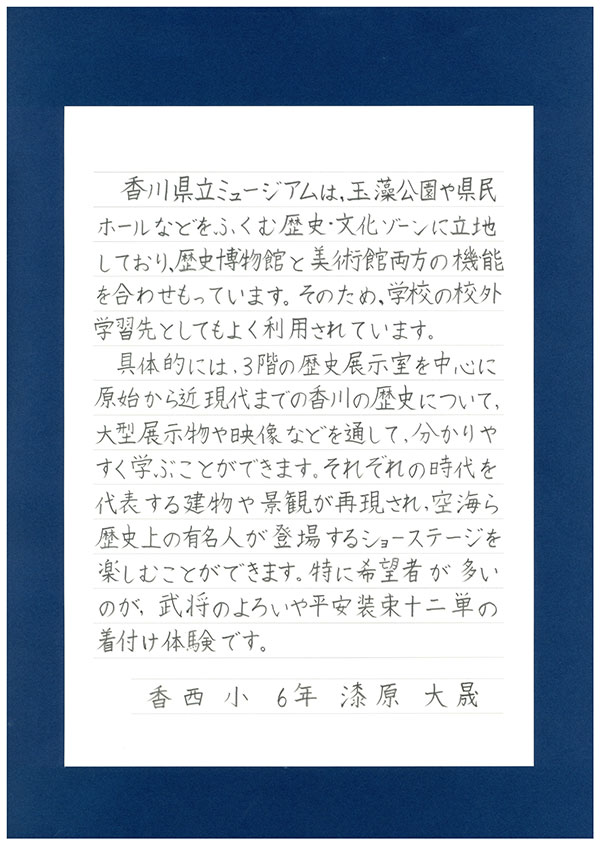 香川県立ミュージアムは、玉藻公園や県民
ホールなどをふくむ歴史・文化ゾーンに立地
しており、歴史博物館と美術館両方の機能
を合わせもっています。そのため、学校の校外
学習先としてもよく利用されています。
具体的には、3階の歴史展示室を中心に
原始から近現代までの香川の歴史について、
大型展示物や映像などを通して、分かりや
すく学ぶことができます。それぞれの時代を
代表する建物や景観が再現され、空海ら
歴史上の有名人が登場するショーステージを
楽しむことができます。特に希望者が多い
のが、武将のよろいや平安装束十二単の
着付け体験です。
香西小 6年 漆原 大晟